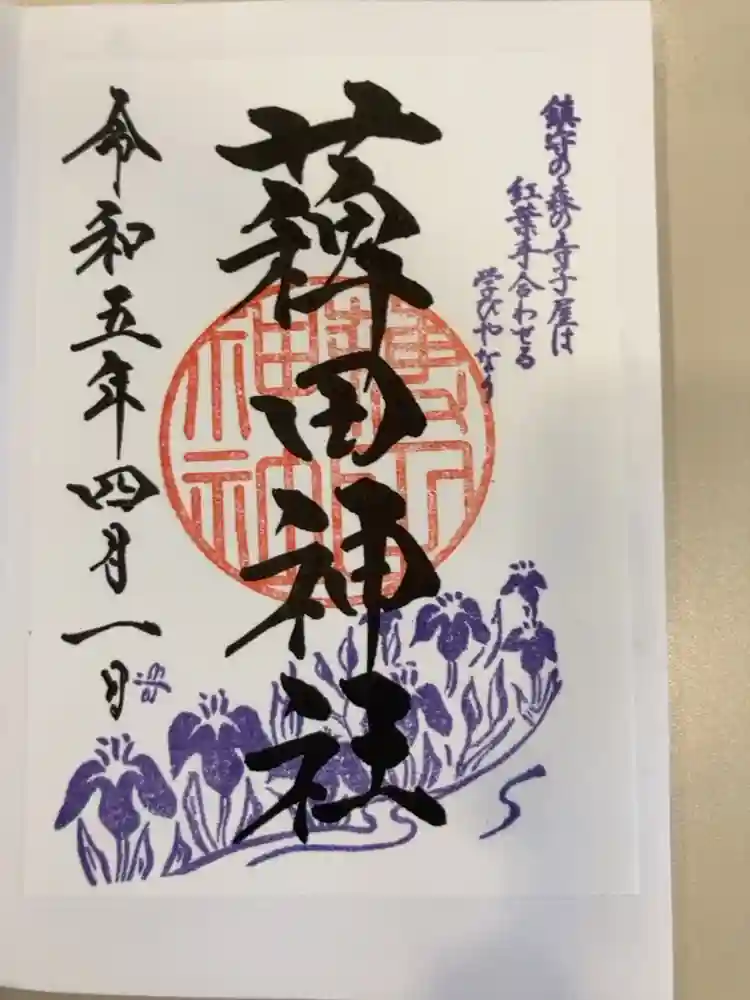 鎮守の森の寺子屋は
紅葉手合わせる
学びやなり
薭田神社
令和五年四月一日